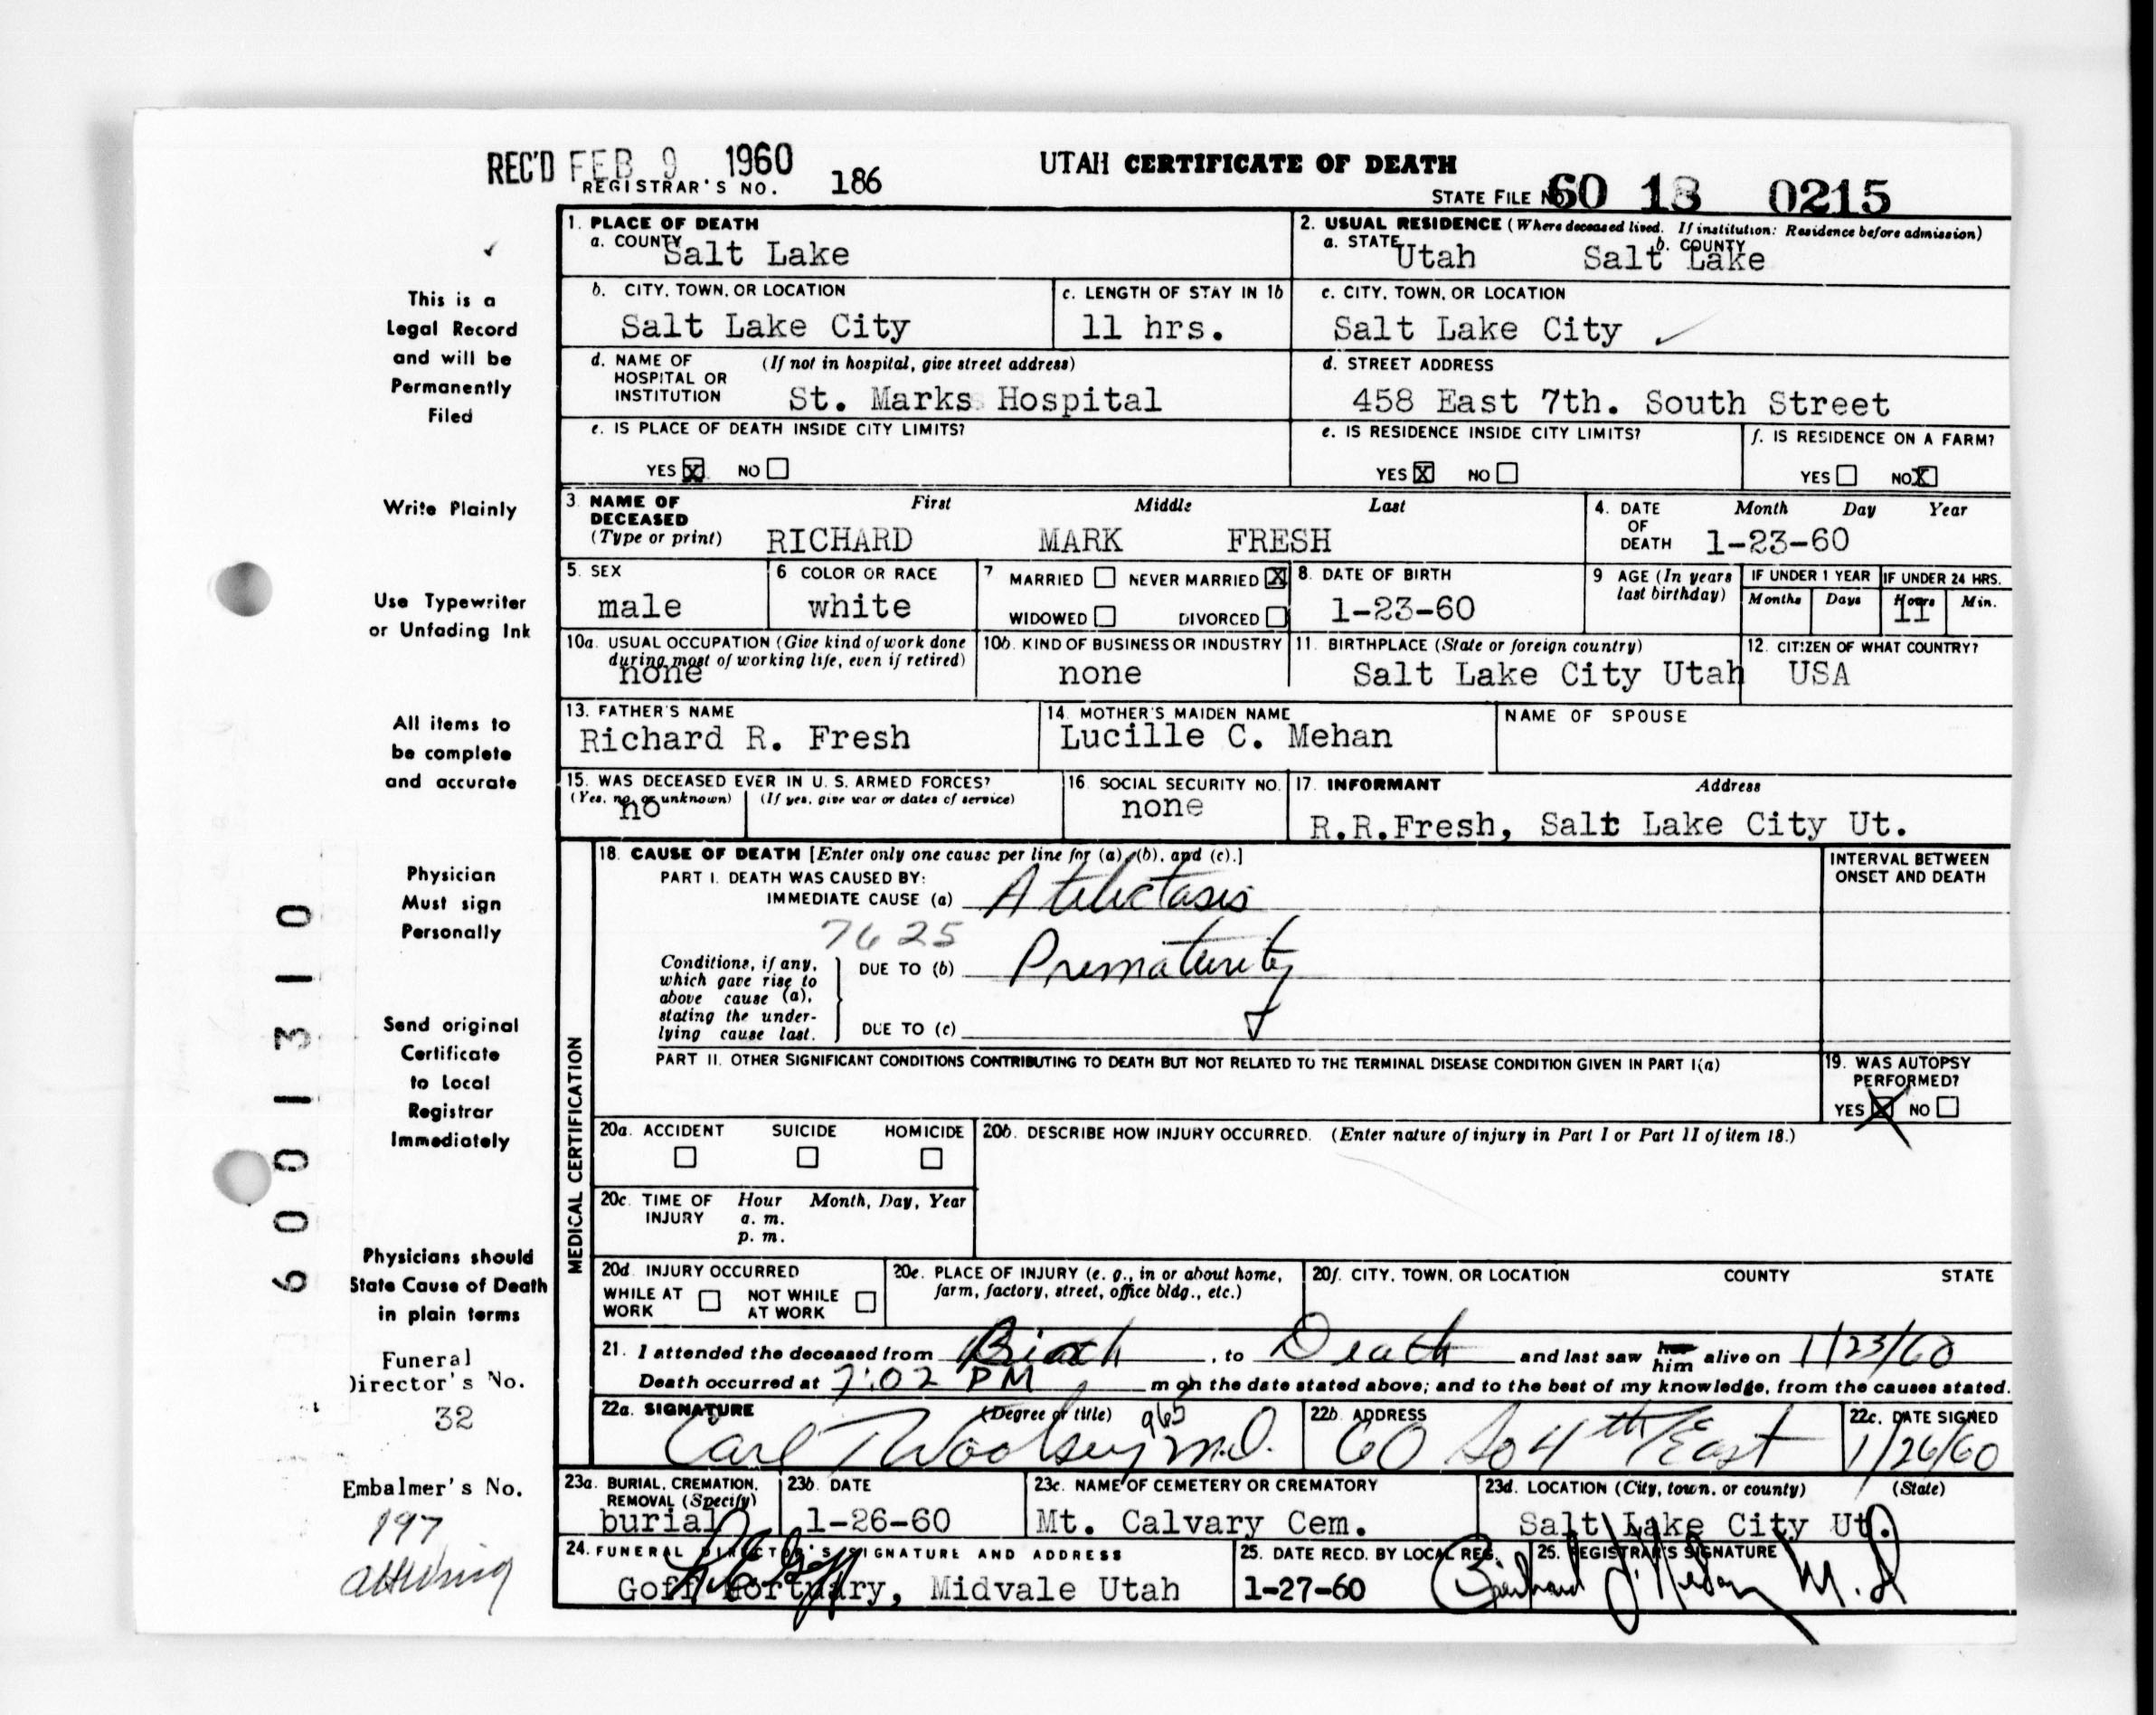 REC'D FEB 9 1960
UTAH CERTIFICATE OF DEATH
REGISTRAR'S NO. 186
STATE FILE NO. 60 18 0215
1. PLACE OF DEATH
a. COUNTY Salt Lake
2. USUAL RESIDENCE (Where deceased lived. If institution: Residence before admission)
a. STATE Utah b. COUNTY Salt Lake
b. CITY, TOWN, OR LOCATION Salt Lake City
c. LENGTH OF STAY IN 1b 11 hrs.
c. CITY, TOWN, OR LOCATION Salt Lake City
d. NAME OF HOSPITAL OR INSTITUTION (If not in hospital, give street address) St. Marks Hospital
d. STREET ADDRESS 458 East 7th. South Street
e. IS PLACE OF DEATH INSIDE CITY LIMITS?
YES X NO
e. IS RESIDENCE INSIDE CITY LIMITS?
YES X NO
f. IS RESIDENCE ON A FARM?
YES NO X
3. NAME OF DECEASED (Type or print)
First Middle Last
RICHARD MARK FRESH
4. DATE OF DEATH Month Day Year
1-23-60
5. SEX male
6 COLOR OR RACE white
7 MARRIED NEVER MARRIED X
WIDOWED DIVORCED
8. DATE OF BIRTH 1-23-60
9 AGE (In years last birthday)
IF UNDER 1 YEAR Months Days
IF UNDER 24 HRS. Hours 11 Min.
10a. USUAL OCCUPATION (Give kind of work done during most of working life, even if retired) none
10b. KIND OF BUSINESS OR INDUSTRY none
11. BIRTHPLACE (State or foreign country) Salt Lake City Utah
12. CITIZEN OF WHAT COUNTRY? USA
13. FATHER'S NAME Richard R. Fresh
14. MOTHER'S MAIDEN NAME Lucille C. Mehan
NAME OF SPOUSE
15. WAS DECEASED EVER IN U. S. ARMED FORCES?
(Yes, no, or unknown) no (If yes, give war or dates of service)
16. SOCIAL SECURITY NO. none
17. INFORMANT Address
R.R.Fresh, Salt Lake City Ut.
18. CAUSE OF DEATH [Enter only one cause per line for (a), (b), and (c).]
PART I. DEATH WAS CAUSED BY:
IMMEDIATE CAUSE (a) Atelectasis
7625
Conditions, if any, which gave rise to above cause (a), stating the underlying cause last.
DUE TO (b) Prematurity
DUE TO (c)
INTERVAL BETWEEN ONSET AND DEATH
PART II. OTHER SIGNIFICANT CONDITIONS CONTRIBUTING TO DEATH BUT NOT RELATED TO THE TERMINAL DISEASE CONDITION GIVEN IN PART I(a)
19. WAS AUTOPSY PERFORMED?
YES X NO
MEDICAL CERTIFICATION
20a. ACCIDENT SUICIDE HOMICIDE
20b. DESCRIBE HOW INJURY OCCURRED. (Enter nature of injury in Part I or Part II of item 18.)
20c. TIME OF INJURY Hour Month, Day, Year
a. m.
p. m.
20d. INJURY OCCURRED
WHILE AT WORK NOT WHILE AT WORK
20e. PLACE OF INJURY (e. g., in or about home, farm, factory, street, office bldg., etc.)
20f. CITY, TOWN, OR LOCATION COUNTY STATE
21. I attended the deceased from Birth, to Death and last saw her him alive on 1/23/60
Death occurred at 7:02 PM m on the date stated above; and to the best of my knowledge, from the causes stated.
22a. SIGNATURE (Degree or title) 965
Carl T Woolsey M.D.
22b. ADDRESS 60 So 4th East
22c. DATE SIGNED 1/26/60
23a. BURIAL, CREMATION, REMOVAL (Specify) burial
23b. DATE 1-26-60
23c. NAME OF CEMETERY OR CREMATORY Mt. Calvary Cem.
23d. LOCATION (City, town, or county) (State)
Salt Lake City Ut.
24. FUNERAL DIRECTOR'S SIGNATURE AND ADDRESS
Goff Mortuary, Midvale Utah
25. DATE RECD. BY LOCAL REG. 1-27-60
25. REGISTRAR'S SIGNATURE
This is a
Legal Record
and will be
Permanently
Filed
Write Plainly
Use Typewriter
or Unfading Ink
All items to
be complete
and accurate
Physician
Must sign
Personally
Send original
Certificate
to Local
Registrar
Immediately
Physicians should
State Cause of Death
in plain terms
Funeral
Director's No.
32
Embalmer's No.
197
6001310